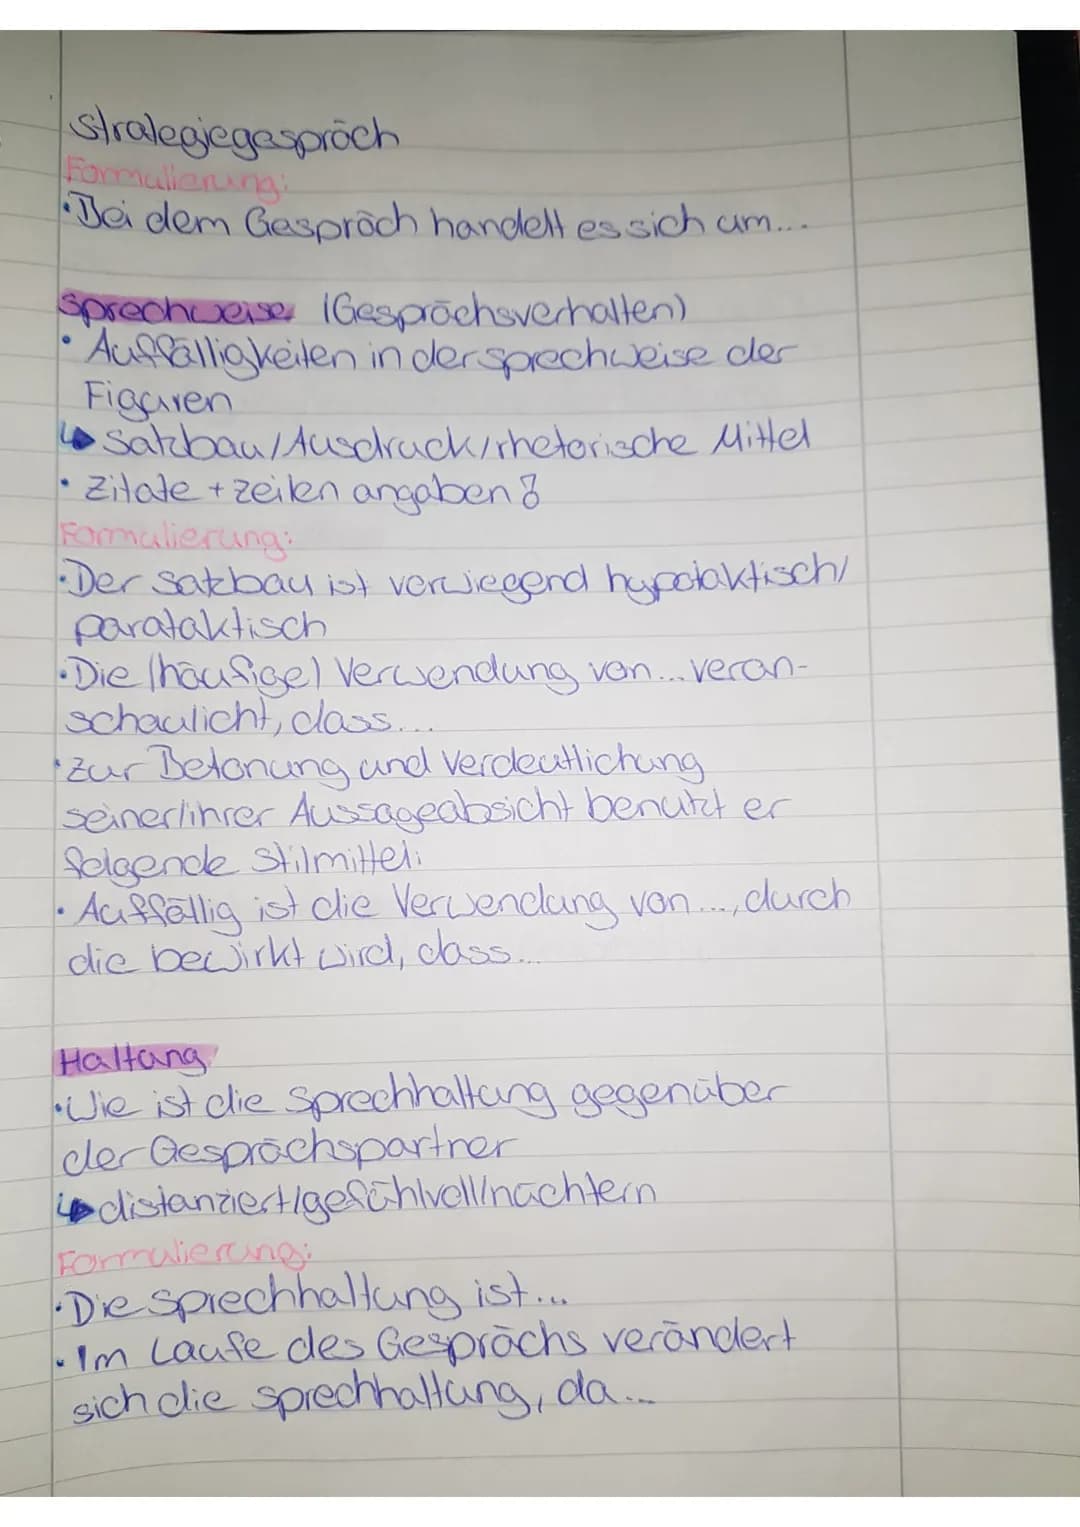 Strategiegespräch
Formulierung:
• Bei dem Gespräch handelt es sich um...
Sprechweise (Gesprächsverhalten)
• Auffälligkeiten in der sprechweise der
Figuren
↳ Satzbau/Ausdruck/rhetorische Mittel
• Zitate + zeilen angaben!
Formulierung:
• Der satzbau ist vorwiegend hypotaktisch/
parataktisch
• Die (häufige) Verwendung von... veran-
schaulicht, dass...
• Zur Betonung und Verdeutlichung
seiner/ihrer Aussageabsicht benutzt er
folgende Stilmittel:
• Auffällig ist die Verwendung von..., durch
die bewirkt wird, dass...
Haltung
• Wie ist die Sprechhaltung gegenüber
der Gesprächspartner
↳ distanziert/gefühlvoll/nüchtern
Formulierung:
• Die sprechhaltung ist...
• Im Laufe des Gesprächs verändert
sich die sprechhaltung, da...